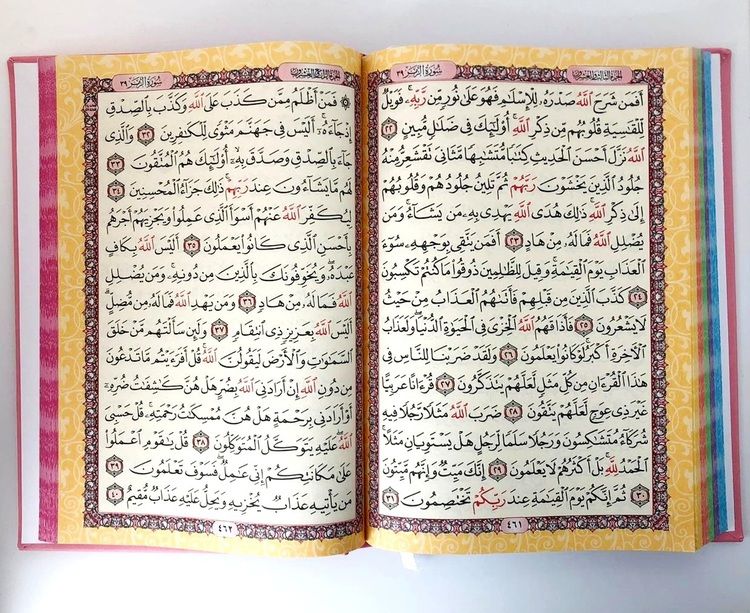 الجُزْءُ الثَّالِثُ وَالعِشْرُونَ سُورَةُ الزُّمَرِ ٣٩
أَفَمَن شَرَحَ ٱللَّهُ صَدْرَهُۥ لِلْإِسْلَٰمِ فَهُوَ عَلَىٰ نُورٍ مِّن رَّبِّهِۦ ۚ فَوَيْلٌ
لِّلْقَٰسِيَةِ قُلُوبُهُم مِّن ذِكْرِ ٱللَّهِ ۚ أُو۟لَٰٓئِكَ فِى ضَلَٰلٍ مُّبِينٍ ٢٢
ٱللَّهُ نَزَّلَ أَحْسَنَ ٱلْحَدِيثِ كِتَٰبًا مُّتَشَٰبِهًا مَّثَانِىَ تَقْشَعِرُّ مِنْهُ
جُلُودُ ٱلَّذِينَ يَخْشَوْنَ رَبَّهُمْ ثُمَّ تَلِينُ جُلُودُهُمْ وَقُلُوبُهُمْ
إِلَىٰ ذِكْرِ ٱللَّهِ ۚ ذَٰلِكَ هُدَى ٱللَّهِ يَهْدِى بِهِۦ مَن يَشَآءُ ۚ وَمَن
يُضْلِلِ ٱللَّهُ فَمَا لَهُۥ مِنْ هَادٍ ٢٣ أَفَمَن يَتَّقِى بِوَجْهِهِۦ سُوٓءَ
ٱلْعَذَابِ يَوْمَ ٱلْقِيَٰمَةِ ۚ وَقِيلَ لِلظَّٰلِمِينَ ذُوقُوا۟ مَا كُنتُمْ تَكْسِبُونَ
٢٤ كَذَّبَ ٱلَّذِينَ مِن قَبْلِهِمْ فَأَتَىٰهُمُ ٱلْعَذَابُ مِنْ حَيْثُ
لَا يَشْعُرُونَ ٢٥ فَأَذَاقَهُمُ ٱللَّهُ ٱلْخِزْىَ فِى ٱلْحَيَوٰةِ ٱلدُّنْيَا ۖ وَلَعَذَابُ
ٱلْءَاخِرَةِ أَكْبَرُ ۚ لَوْ كَانُوا۟ يَعْلَمُونَ ٢٦ وَلَقَدْ ضَرَبْنَا لِلنَّاسِ فِى
هَٰذَا ٱلْقُرْءَانِ مِن كُلِّ مَثَلٍ لَّعَلَّهُمْ يَتَذَكَّرُونَ ٢٧ قُرْءَانًا عَرَبِيًّا
غَيْرَ ذِى عِوَجٍ لَّعَلَّهُمْ يَتَّقُونَ ٢٨ ضَرَبَ ٱللَّهُ مَثَلًا رَّجُلًا فِيهِ
شُرَكَآءُ مُتَشَٰكِسُونَ وَرَجُلًا سَلَمًا لِّرَجُلٍ هَلْ يَسْتَوِيَانِ مَثَلًا ۚ
ٱلْحَمْدُ لِلَّهِ ۚ بَلْ أَكْثَرُهُمْ لَا يَعْلَمُونَ ٢٩ إِنَّكَ مَيِّتٌ وَإِنَّهُم مَّيِّتُونَ
٣٠ ثُمَّ إِنَّكُمْ يَوْمَ ٱلْقِيَٰمَةِ عِندَ رَبِّكُمْ تَخْتَصِمُونَ ٣١
٤٦١
الجُزْءُ الرَّابِعُ وَالعِشْرُونَ سُورَةُ الزُّمَرِ ٣٩
۞ فَمَنْ أَظْلَمُ مِمَّن كَذَبَ عَلَى ٱللَّهِ وَكَذَّبَ بِٱلصِّدْقِ
إِذْ جَآءَهُۥٓ ۚ أَلَيْسَ فِى جَهَنَّمَ مَثْوًى لِّلْكَٰفِرِينَ ٣٢ وَٱلَّذِى
جَآءَ بِٱلصِّدْقِ وَصَدَّقَ بِهِۦٓ ۙ أُو۟لَٰٓئِكَ هُمُ ٱلْمُتَّقُونَ ٣٣
لَهُم مَّا يَشَآءُونَ عِندَ رَبِّهِمْ ۚ ذَٰلِكَ جَزَآءُ ٱلْمُحْسِنِينَ ٣٤
لِيُكَفِّرَ ٱللَّهُ عَنْهُمْ أَسْوَأَ ٱلَّذِى عَمِلُوا۟ وَيَجْزِيَهُمْ أَجْرَهُم
بِأَحْسَنِ ٱلَّذِى كَانُوا۟ يَعْمَلُونَ ٣٥ أَلَيْسَ ٱللَّهُ بِكَافٍ
عَبْدَهُۥ ۖ وَيُخَوِّفُونَكَ بِٱلَّذِينَ مِن دُونِهِۦ ۚ وَمَن يُضْلِلِ
ٱللَّهُ فَمَا لَهُۥ مِنْ هَادٍ ٣٦ وَمَن يَهْدِ ٱللَّهُ فَمَا لَهُۥ مِن مُّضِلٍّ ۗ
أَلَيْسَ ٱللَّهُ بِعَزِيزٍ ذِى ٱنتِقَامٍ ٣٧ وَلَئِن سَأَلْتَهُم مَّنْ خَلَقَ
ٱلسَّمَٰوَٰتِ وَٱلْأَرْضَ لَيَقُولُنَّ ٱللَّهُ ۚ قُلْ أَفَرَءَيْتُم مَّا تَدْعُونَ
مِن دُونِ ٱللَّهِ إِنْ أَرَادَنِىَ ٱللَّهُ بِضُرٍّ هَلْ هُنَّ كَٰشِفَٰتُ ضُرِّهِۦٓ
أَوْ أَرَادَنِى بِرَحْمَةٍ هَلْ هُنَّ مُمْسِكَٰتُ رَحْمَتِهِۦ ۚ قُلْ حَسْبِىَ
ٱللَّهُ ۖ عَلَيْهِ يَتَوَكَّلُ ٱلْمُتَوَكِّلُونَ ٣٨ قُلْ يَٰقَوْمِ ٱعْمَلُوا۟
عَلَىٰ مَكَانَتِكُمْ إِنِّى عَٰمِلٌ ۖ فَسَوْفَ تَعْلَمُونَ ٣٩
مَن يَأْتِيهِ عَذَابٌ يُخْزِيهِ وَيَحِلُّ عَلَيْهِ عَذَابٌ مُّقِيمٌ ٤٠
٤٦٢